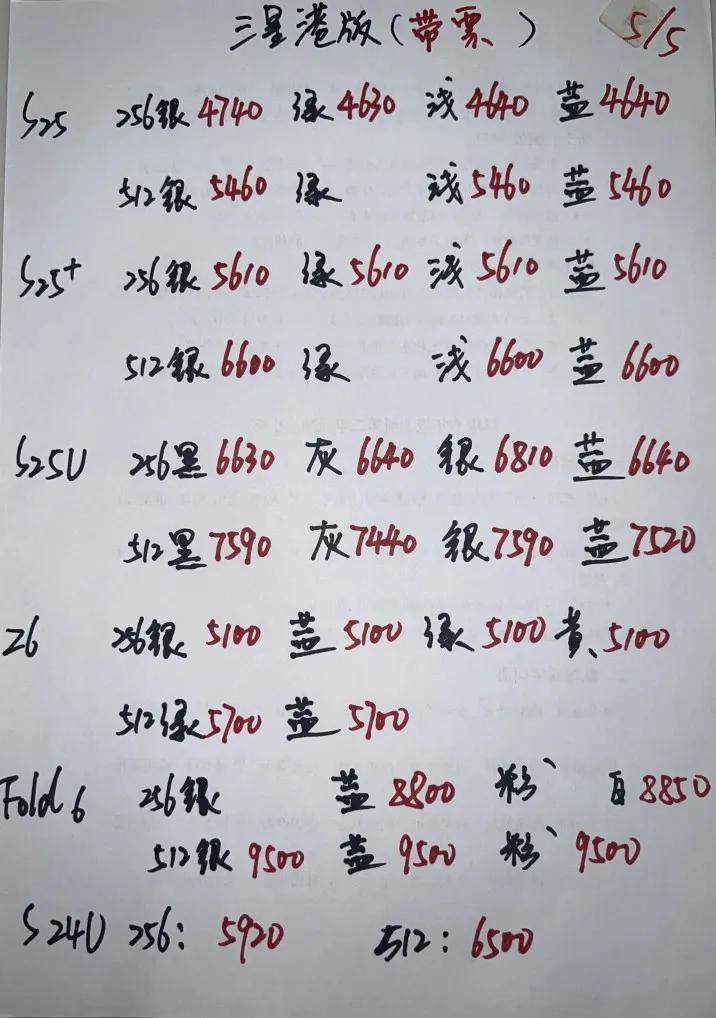 三星港版(带票) 5/5
S25 256银4740 绿4630 浅4640 蓝4640
512银5460 绿 浅5460 蓝5460
S25+ 256银5610 绿5610 浅5610 蓝5610
512银6600 绿 浅6600 蓝6600
S25U 256黑6630 灰6640 银6810 蓝6640
512黑7590 灰7440 银7590 蓝7520
Z6 256银5100 蓝5100 绿5100 黄5100
512绿5700 蓝5700
Fold6 256银 蓝8800 粉 白8850
512银9500 蓝9500 粉9500
S24U 256:5920 512:6500